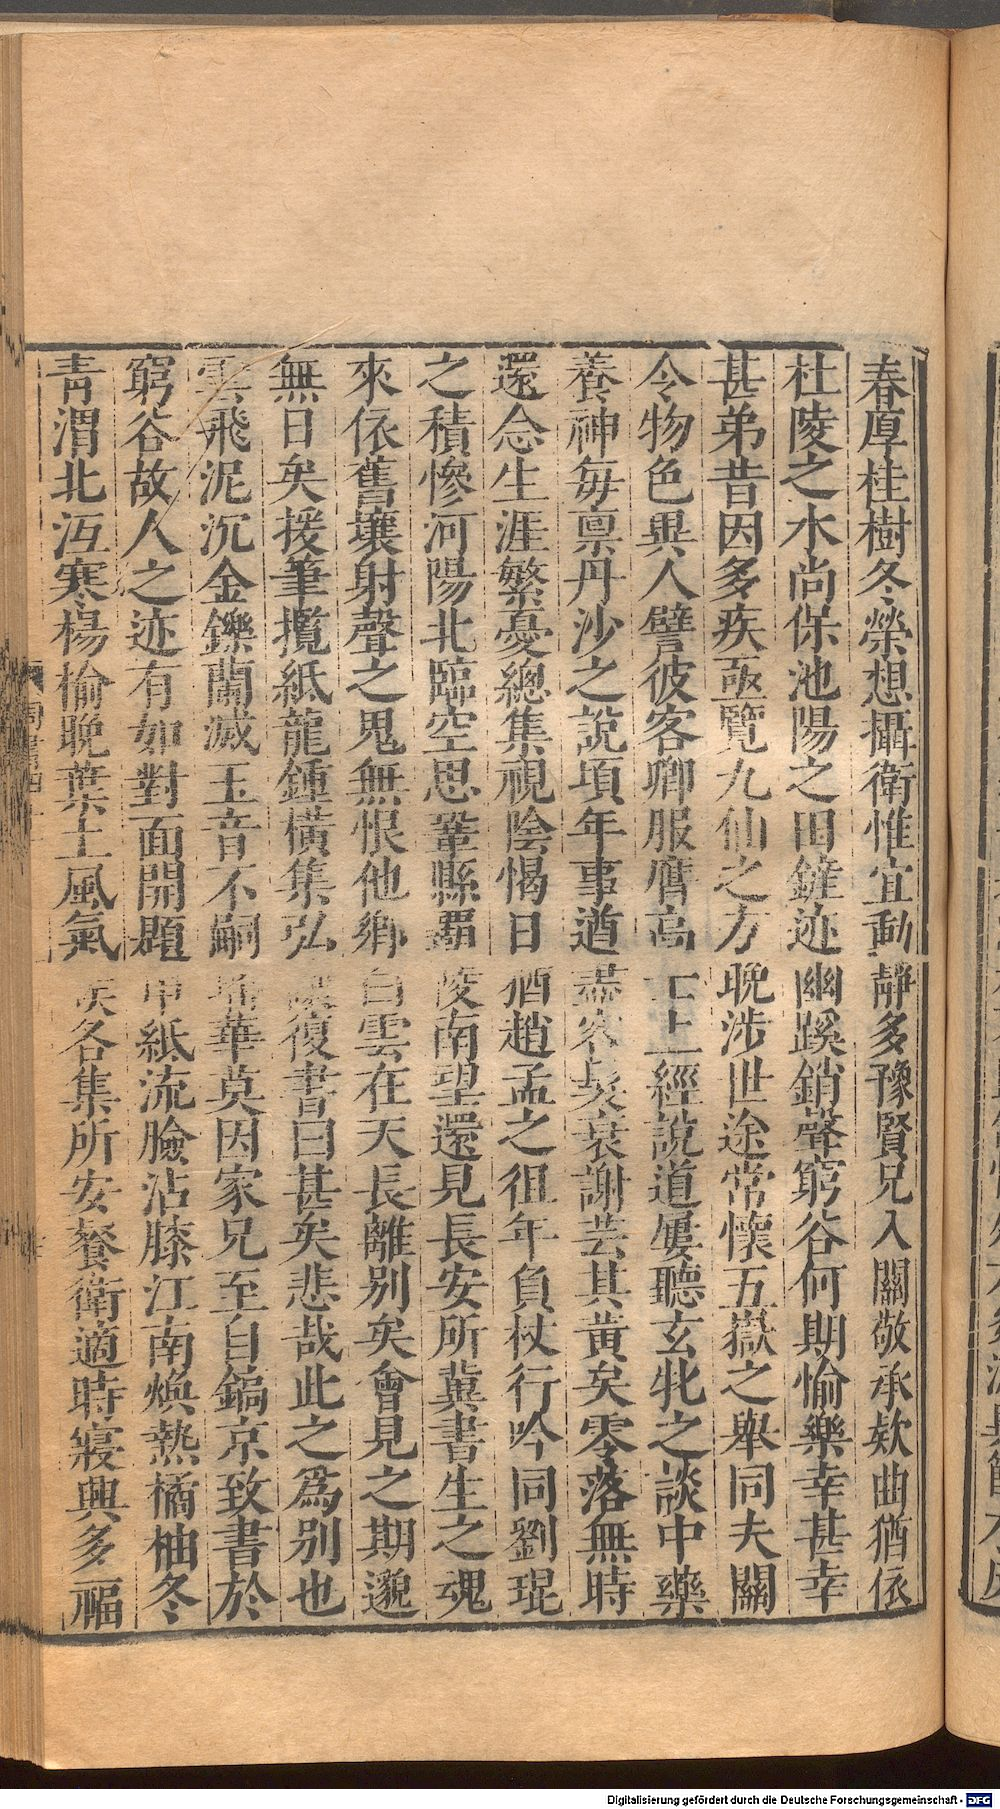 春厚桂樹冬榮想攝衛惟宜動靜多豫賢兄入關敬承欵曲猶依
杜陵之水尚保池陽之田鏟迹幽蹊銷聲窮谷何期愉樂幸甚幸
甚弟昔因多疾亟覽九仙之方晚涉世途常懷五嶽之舉同夫關
令物色異人譬彼客卿服膺高士上經說道屢聽玄牝之談中藥
養神每稟丹沙之說頃年事遒盡容髮衰謝芸其黃矣零落無時
還念生涯繁憂總集視陰愒日猶趙孟之徂年負杖行吟同劉琨
之積慘河陽北臨空思鞏縣霸陵南望還見長安所冀書生之魂
來依舊壤射聲之鬼無恨他鄉白雲在天長離別矣會見之期邈
無日矣援筆攬紙龍鍾橫集弘讓復書曰甚矣悲哉此之爲別也
雲飛泥沉金鑠蘭滅玉音不嗣瑤華莫因家兄至自鎬京致書於
窮谷故人之迹有如對面開題申紙流臉沾膝江南燠熱橘柚冬
青渭北沍寒楊榆晚葉土風氣候各集所安餐衛適時寢興多福
Digitalisierung gefördert durch die Deutsche Forschungsgemeinschaft - DFG